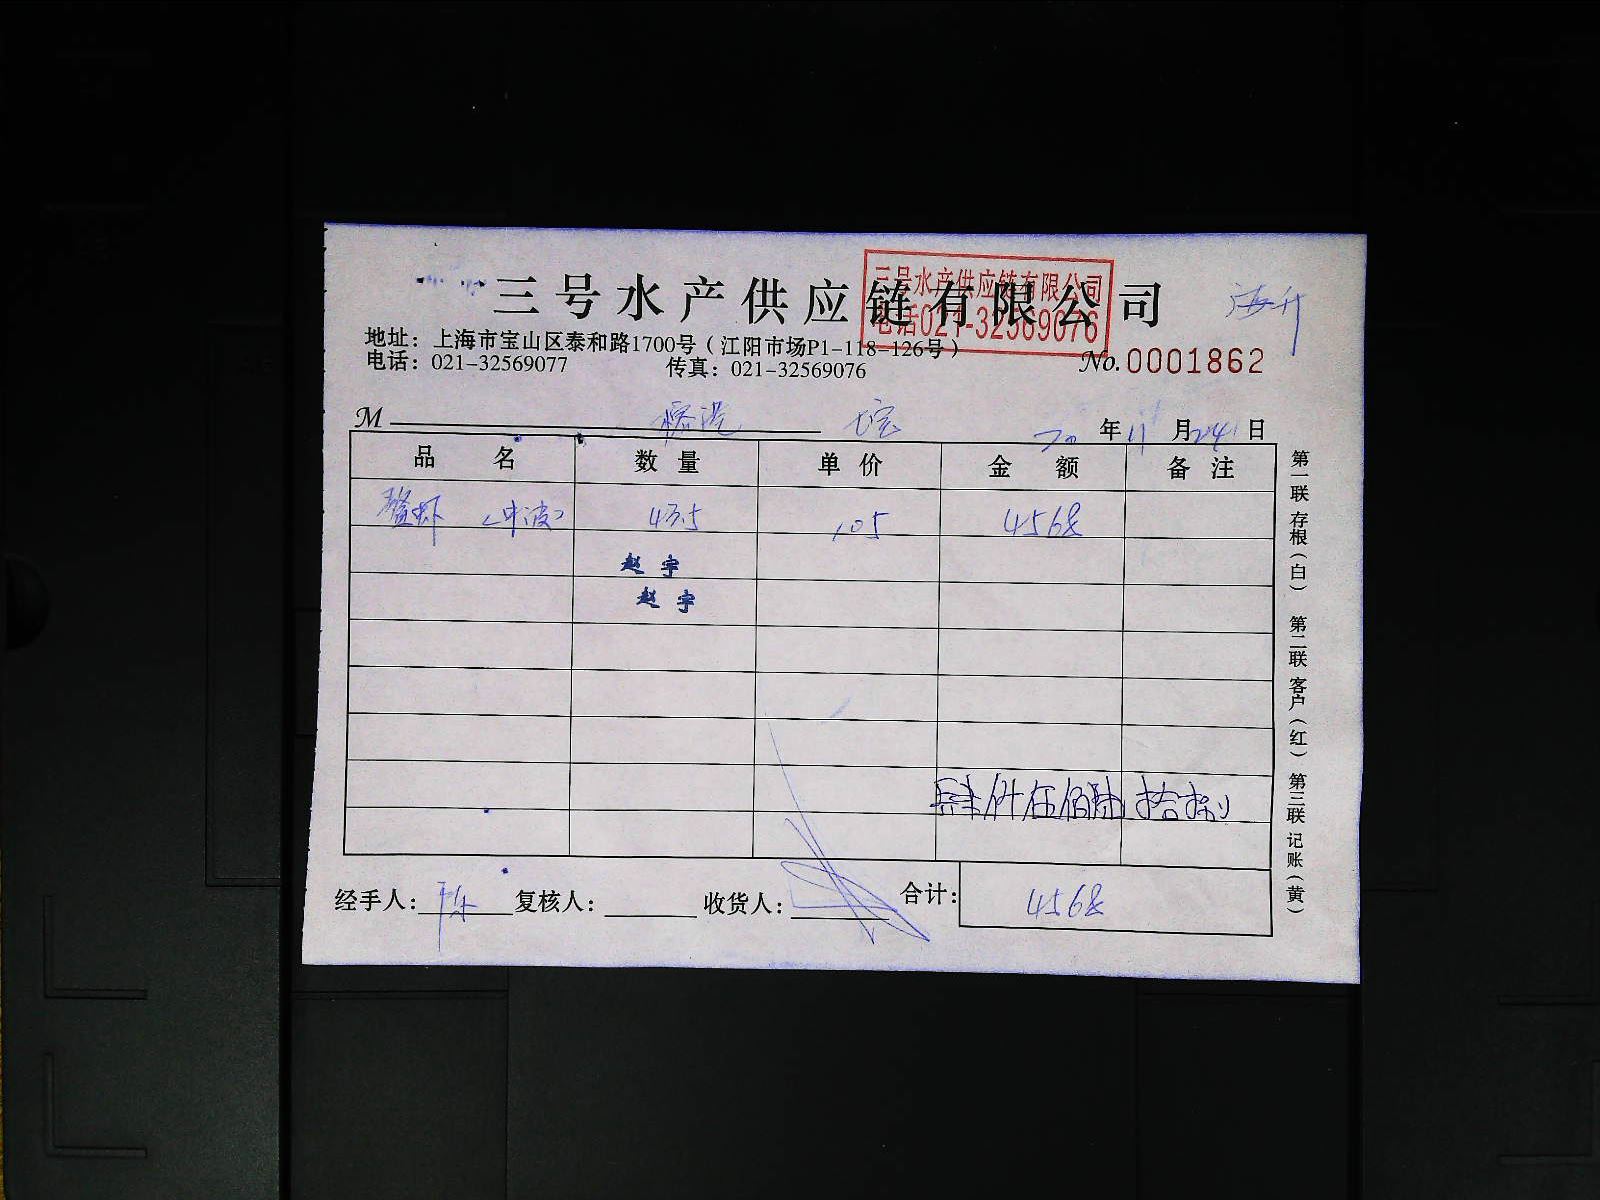 三号水产供应链有限公司
三号水产供应链有限公司
电话021-32569076
海升
地址：上海市宝山区泰和路1700号（江阳市场P1-118-126号）
电话：021-32569077 传真：021-32569076
No.0001862
M
年11月24日
品 名 数量 单价 金 额 备 注
43.5 105 4568
赵宇
赵宇
肆仟伍佰陆拾捌
经手人： 复核人： 收货人： 合计： 4568
第一联 存根（白） 第二联 客户（红） 第三联 记账（黄）